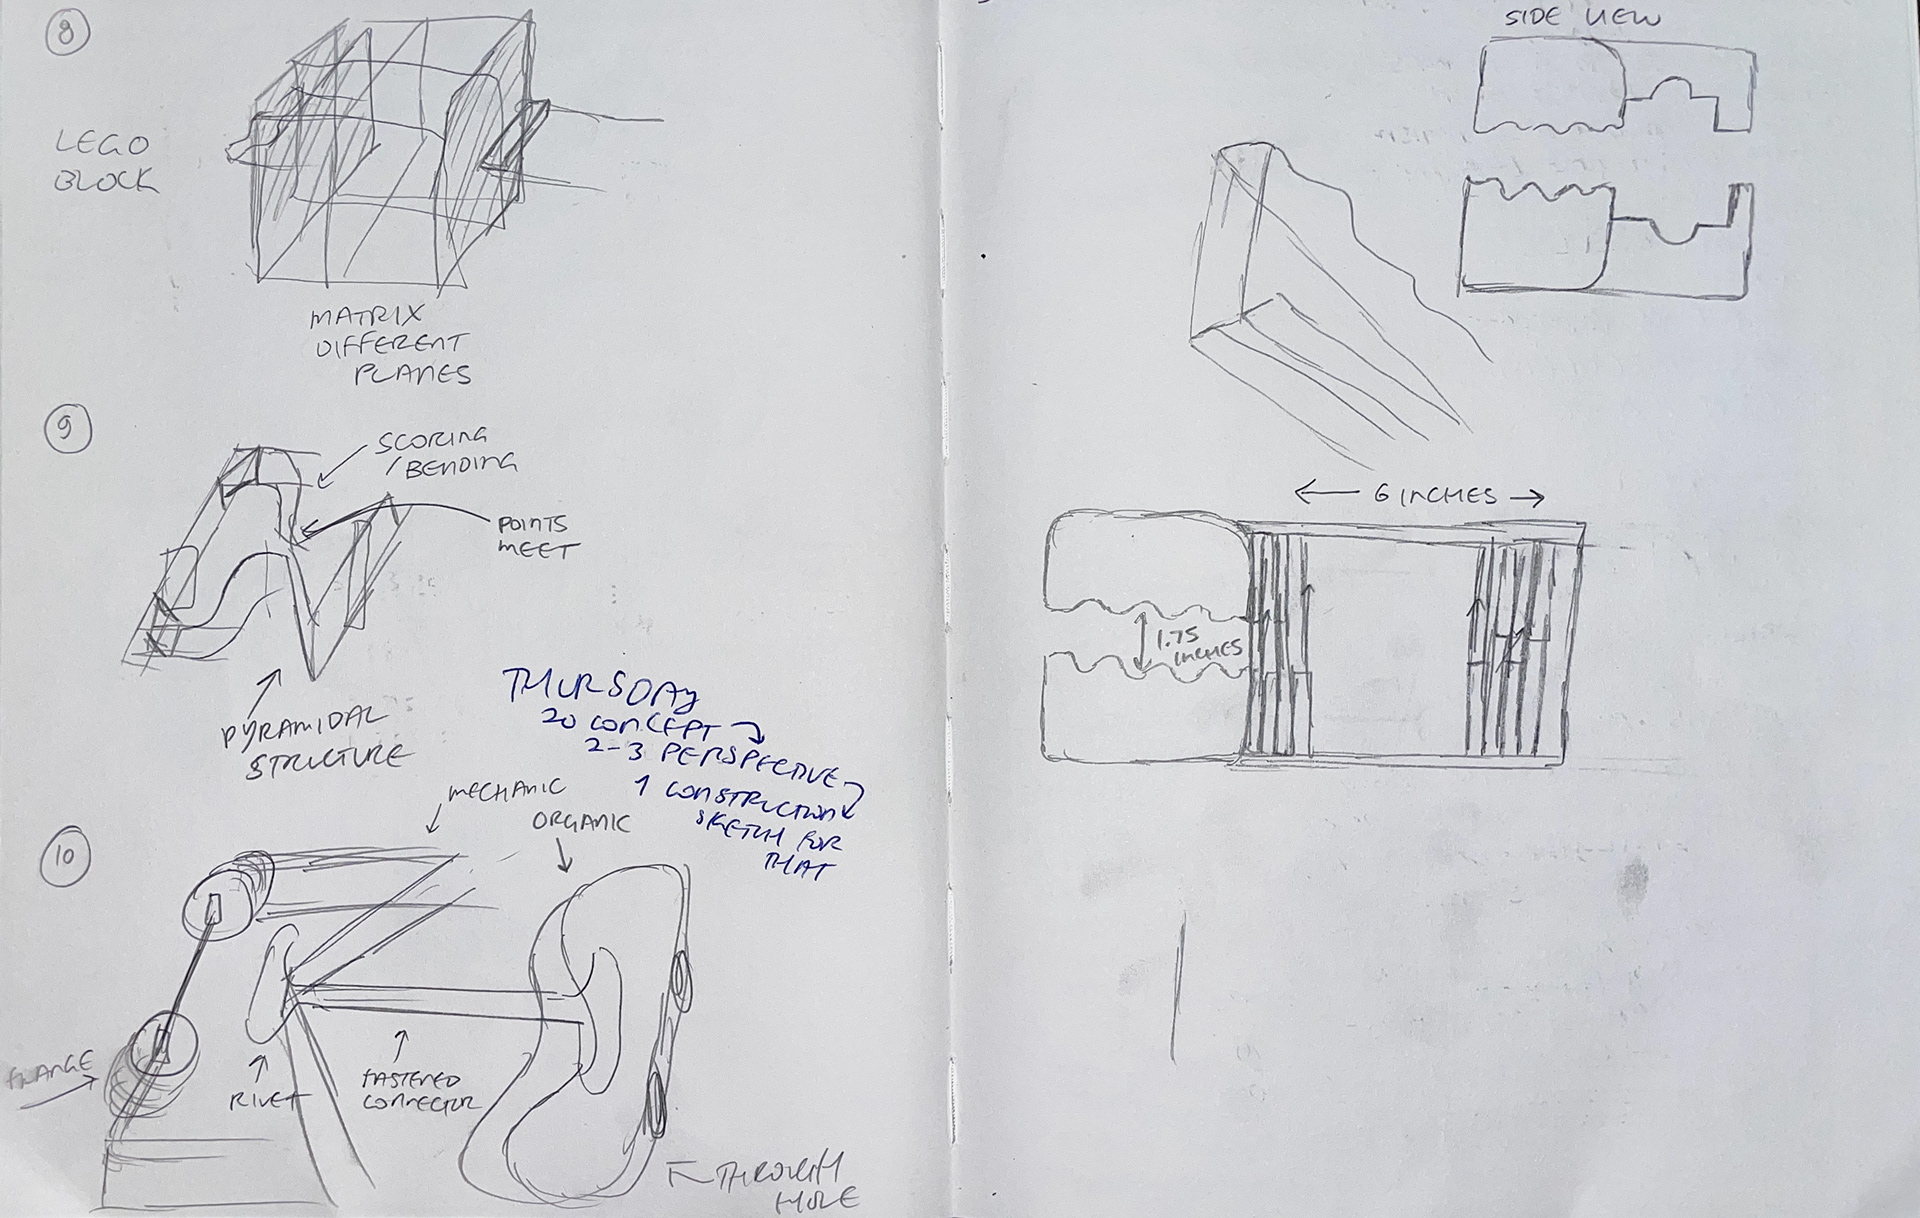 8
LEGO
BLOCK
MATRIX
DIFFERENT
PLANES
9
SCORING
/BENDING
POINTS
MEET
PYRAMIDAL
STRUCTURE
THURSDAY
20 CONCEPT
2-3 PERSPECTIVE
1 CONSTRUCTION
SKETCH FOR
THAT
10
MECHANIC
ORGANIC
FLANGE
RIVET
FASTENED
CONNECTOR
THROUGH
HOLE
SIDE VIEW
6 INCHES
1.75
INCHES